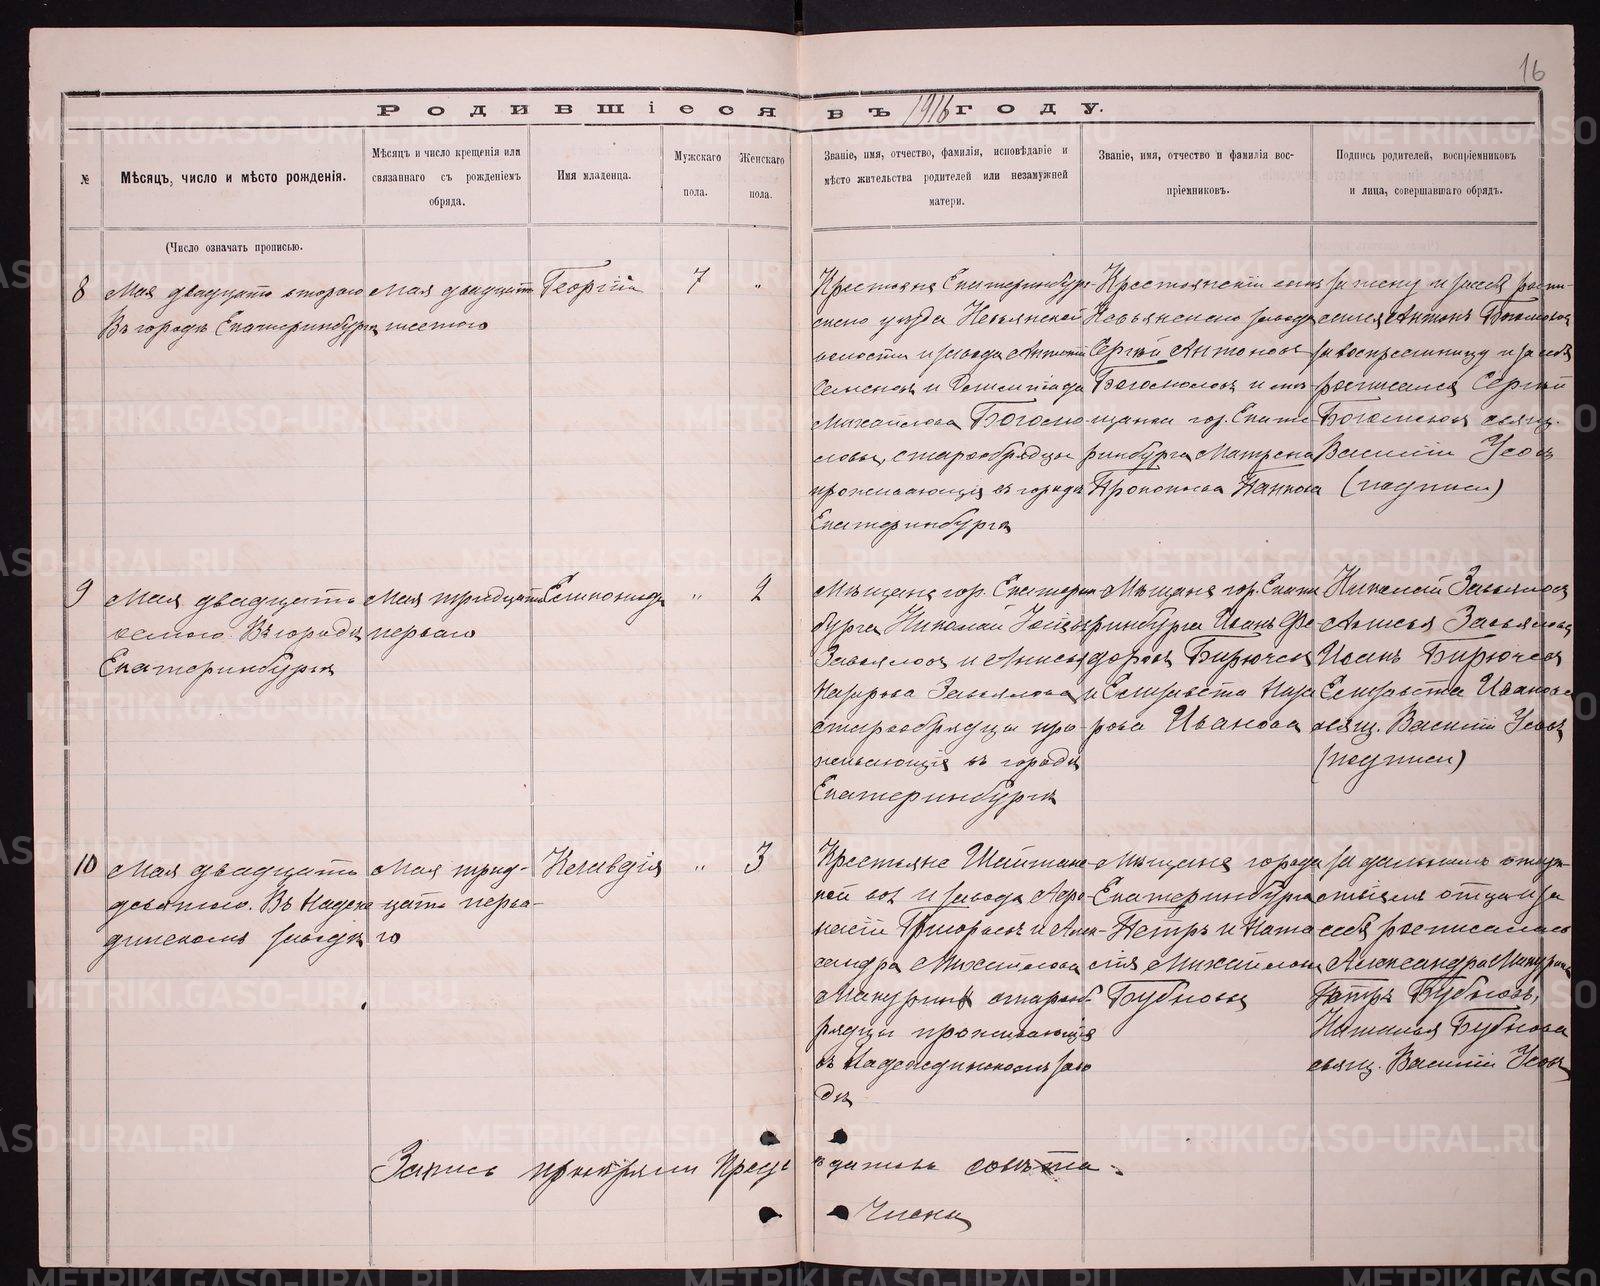 16
Родившіеся въ 1916 году.
№
Мѣсяцъ, число и мѣсто рожденія.
(Число означать прописью.
Мѣсяцъ и число крещенія или
связаннаго съ рожденіемъ
обряда.
Имя младенца.
Мужскаго
пола.
Женскаго
пола.
Званіе, имя, отчество, фамилія, исповѣданіе и
мѣсто жительства родителей или незамужней
матери.
Званіе, имя, отчество и фамилія вос-
пріемниковъ.
Подпись родителей, воспріемниковъ
и лица, совершавшаго обрядъ.
8
Мая двадцать второго
Въ городѣ Екатеринбургѣ
Мая двадцать
шестого
Георгій
7
"
Крестьяне Екатеринбург-
скаго уѣзда Невьянской
волости и завода Антоній
Семеновъ и
Михайлова Богомо-
ловы, старообрядцы
проживающіе въ городѣ
Екатеринбургѣ
Крестьянскій сынъ
Невьянскаго завода
Сергѣй Антоновъ
Богомоловъ и мѣ-
щанка гор. Екате-
ринбурга Матрена
Прокопьева Панкова
за жену и за себя роспи-
сался Антонъ Богомоловъ
за воспреемницу и за себя
росписался Сергѣй
Богомоловъ свящ.
Василій Усовъ
(подписи)
9
Мая двадцать
седьмого. Въ городѣ
Екатеринбургѣ
Мая тридцать
перваго
"
2
Мѣщане гор. Екатерин-
бурга Николай
Завьяловъ и Анисья
Назарова Завьялова
старообрядцы про-
живающіе въ городѣ
Екатеринбургѣ
Мѣщане гор. Екате-
ринбурга Иванъ Фе-
доровъ Бирючевъ
и Елизавета Наза-
рова Иванова
Николай Завьяловъ
Анисья Завьялова
Иванъ Бирючевъ
Елизавета Иванова
свящ. Василій Усовъ
(подписи)
10
Мая двадцать
девятого. Въ Надеж-
динскомъ заводѣ
Мая трид-
цать перва-
го
Клавдія
"
3
Крестьяне Шайтанс-
кой вол. и завода Афо-
насій Григорьевъ и Алек-
сандра Михайлова
старооб-
рядцы проживающіе
въ Надеждинскомъ заво
дѣ
Мѣщане города
Екатеринбурга
Петръ и Ната-
лія Михайловы
Бубновы
за дальнимъ отсут-
ствіемъ отца и за
себя росписалась
Александра
Петръ Бубновъ,
Наталья Бубнова
свящ. Василій Усовъ
Запись провѣряли Предсѣдатель совѣта